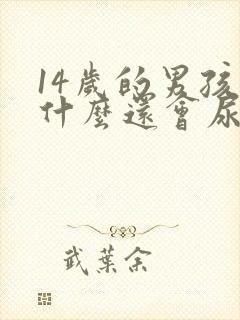 14歲的男孩
什麼還會尿
武葉余